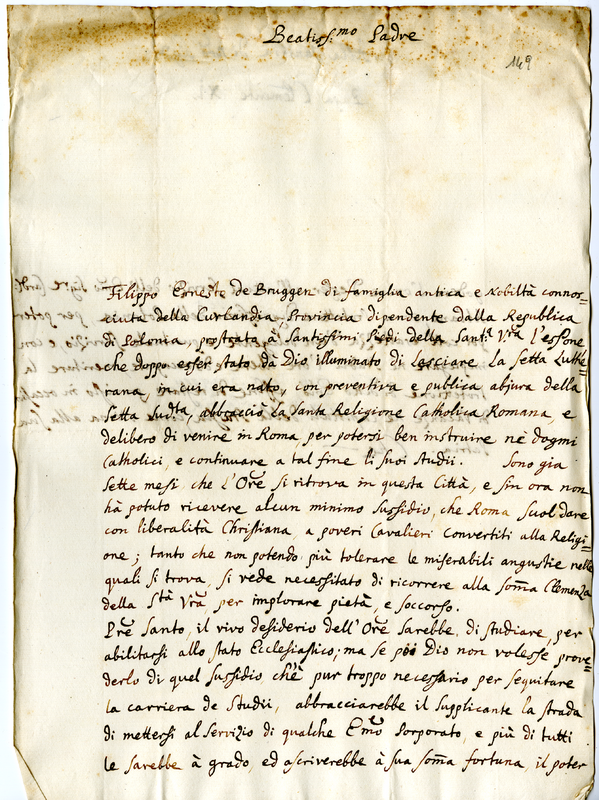 Beatiss.mo Padre
149
Filippo Erneste de Bruggen di famiglia antica e Nobiltà connos=
ciuta della Curlandia, Provincia dipendente dalla Republica
di Polonia, prostrata à Santissimi Piedi della Santà Vrã l'espone
che doppo esser stato dà Dio illuminato di Lasciare la Setta Luthe=
rana, in cui era nato, con preventiva e publica abjura della
Setta Sudta, abbracciò la Santa Religione Catholica Romana, e
deliberò di venire in Roma per potersi ben instruire nè dogmi
Catholici, e continuare a tal fine li suoi Studii. Sono gia
Sette mesi, che l'Orẽ si ritrova in questa Città, e sin ora non
hà potuto ricevere alcun minimo Sussidio, che Roma suol dare
con liberalità Christiana, a poveri Cavalieri convertiti alla Religi=
one; tanto che non potendo più tolerare le miserabili angustie nelle
quali si trova, si vede necessitato di ricorrere alla Som̃a Clemenza
della Stà Vrã, per implorare pietà, e soccorso.
Prẽ Santo, il vivo desiderio dell'Orẽ Sarebbe di studiare, per
abilitarsi allo stato Ecclesiastico; ma se poi Dio non volesse prove=
derlo di quel sussidio ch'è pur troppo necessario per seguitare
la carriera de Studii, abbracciarebbe il supplicante la strada
di mettersi al Servizio di qualche Em̃o Porporato, e più di tutti
le sarebbe à grado, ed ascriverebbe à sua som̃a fortuna, il poter